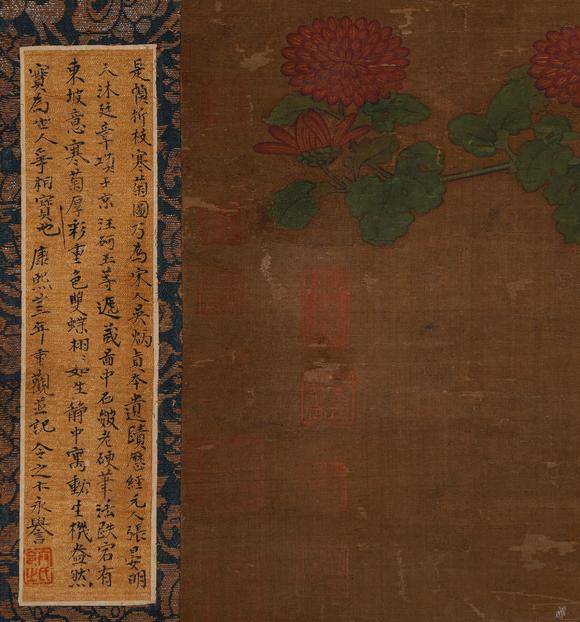 是幀折枝寒菊圖乃為宋人吳炳真本遺蹟歷經元人張晏明
人沐廷章項子京汪砢玉等遞藏畐中石皴老硬筆法跌宕有
東坡意寒菊厚彩重色雙蝶栩如生靜中寓動生機盎然
寶為世人爭相寶也 康熙三年重觀並記 令之卞永譽